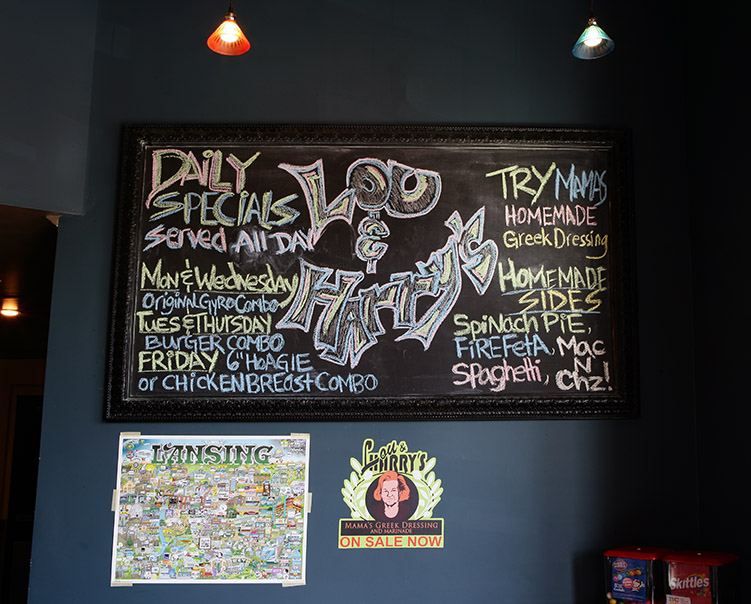 DAILY
SPECIALS
SERVED All DAY
Mon & Wednesday
ORIGINAL GYRO COMBO
TUES & THURSDAY
BURGER COMBO
FRIDAY 6" HOAGIE
or CHICKEN BREAST COMBO
LOU
&
HARRY'S
TRY MAMAS
HOMEMADE
Greek Dressing
HOMEMADE
SIDES
SPiNacH PiE,
FiREFetA, Mac
N
SPaghetti, Chz!
LANSING
Lou &
HARRY'S
MAMA'S GREEK DRESSING
AND MARINADE
ON SALE NOW
Skittles